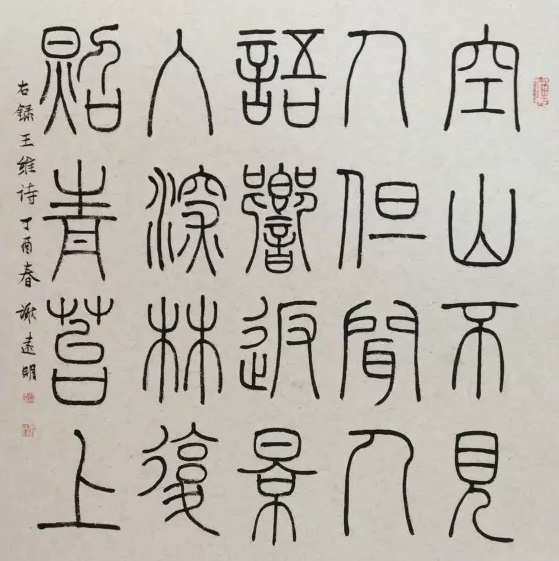 空山不見
人但聞人
語響返景
入深林復
照青苔上
右録王維诗丁酉春谢遠明